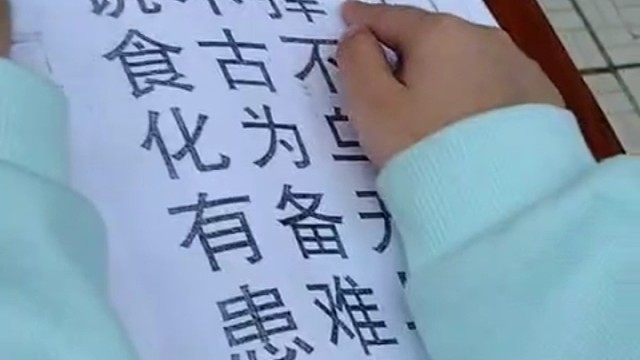 食古不
化为乌
有备
患难